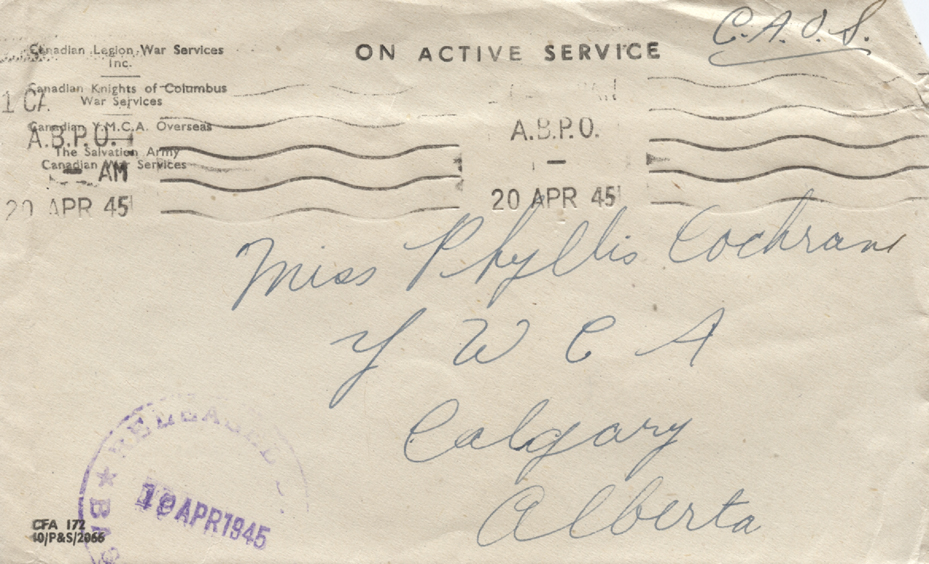 C.A.O.S.
ON ACTIVE SERVICE
Canadian Legion War Services
Inc.
Canadian Knights of Columbus
War Services
Canadian Y.M.C.A. Overseas
The Salvation Army
Canadian War Services
1 CA
A.B.P.O.
– AM
20 APR 45
A.B.P.O.
–
20 APR 45
Miss Phyllis Cochrane
Y W C A
Calgary
Alberta
RELEASED
APR 1945
BAS
CFA 172